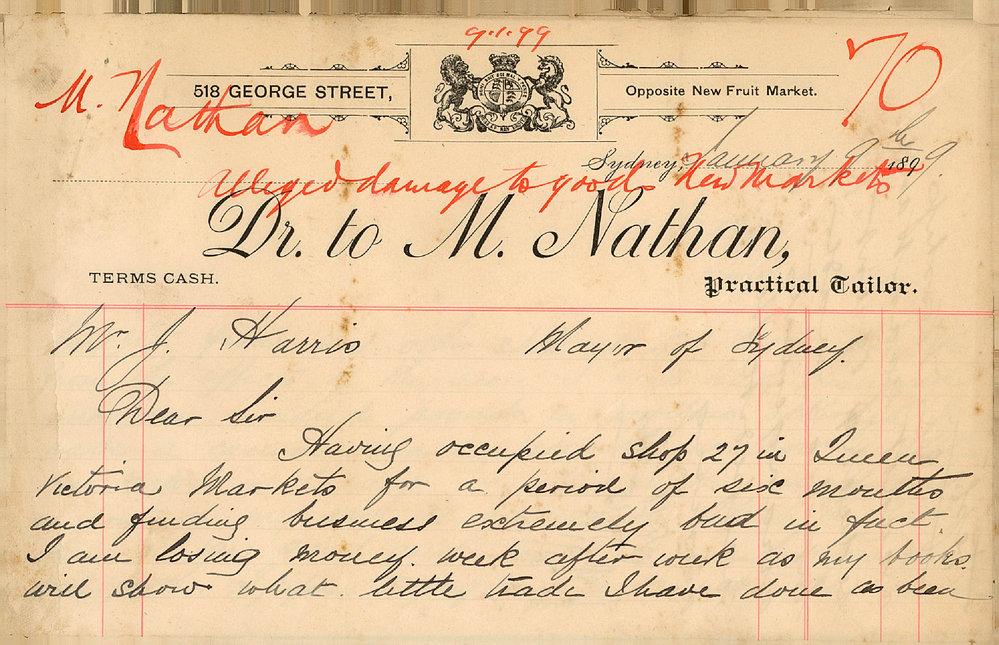 9.1.99
70
518 GEORGE STREET,
Opposite New Fruit Market.
M. Nathan
Sydney, January 9th 1899.
Alleged damage to goods New Markets
Dr. to M. Nathan,
TERMS CASH.
Practical Tailor.
Mr. J. Harris Mayor of Sydney.
Dear Sir
Having occupied shop 27 in Queen
Victoria Markets for a period of six months
and finding business extremely bad in fact.
I am losing money. week after week as my books.
will show what. little trade I have done as been